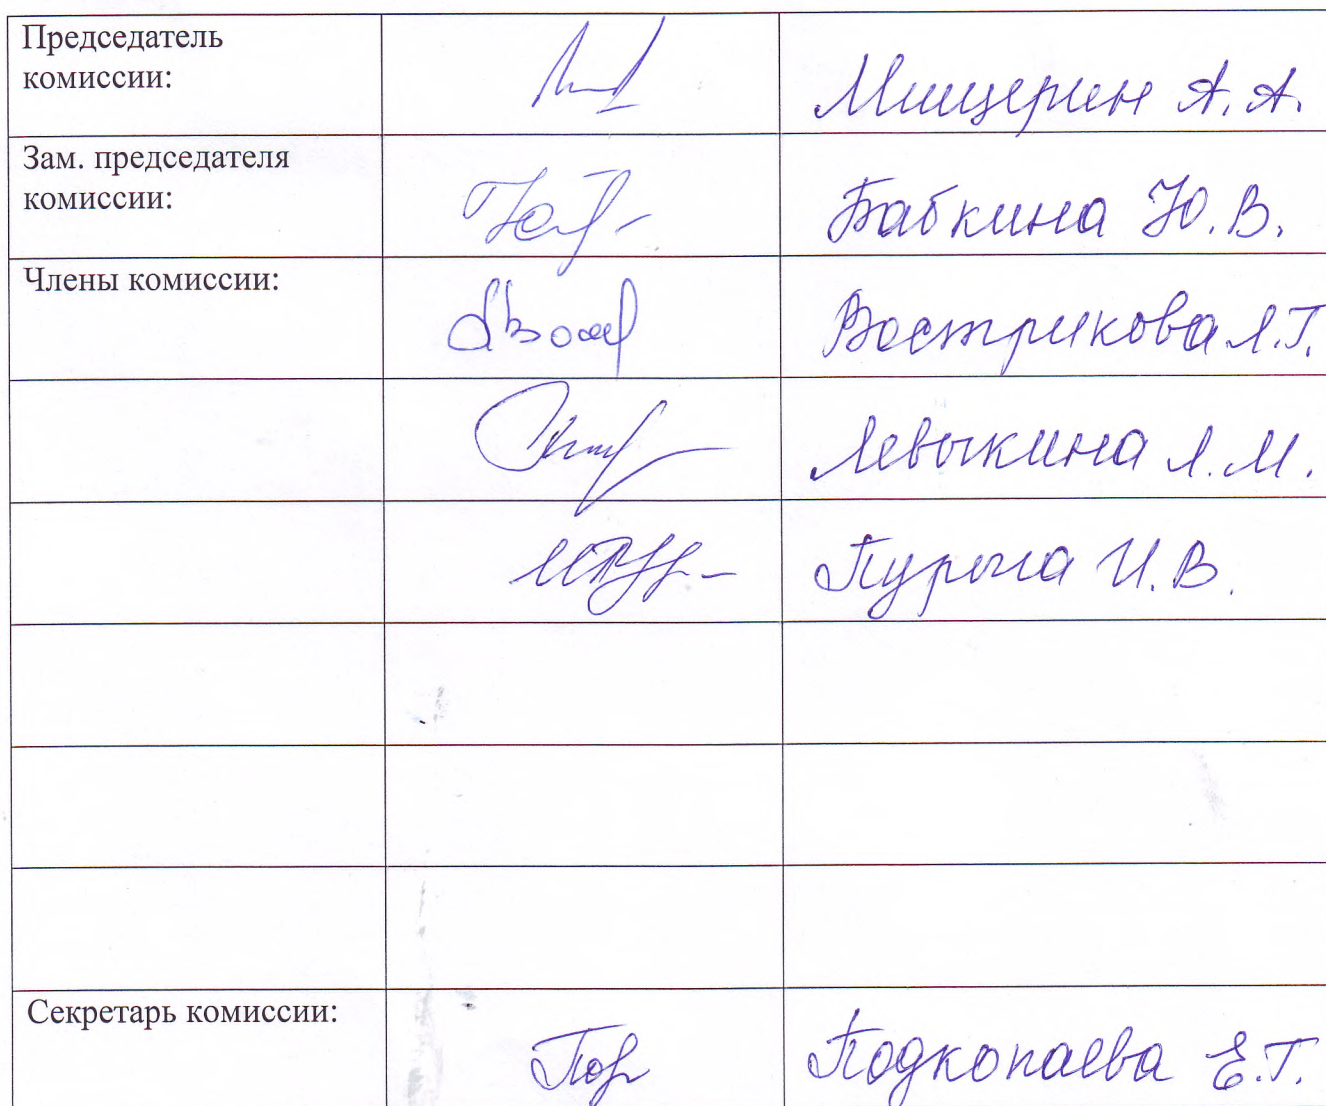 Председатель
комиссии:
Мищерин А. А.
Зам. председателя
комиссии:
Бабкина Ю. В.
Члены комиссии:
Вострикова Л.Г.
Левыкина Л. М.
И. В.
Секретарь комиссии:
Подкопаева Е.Г.